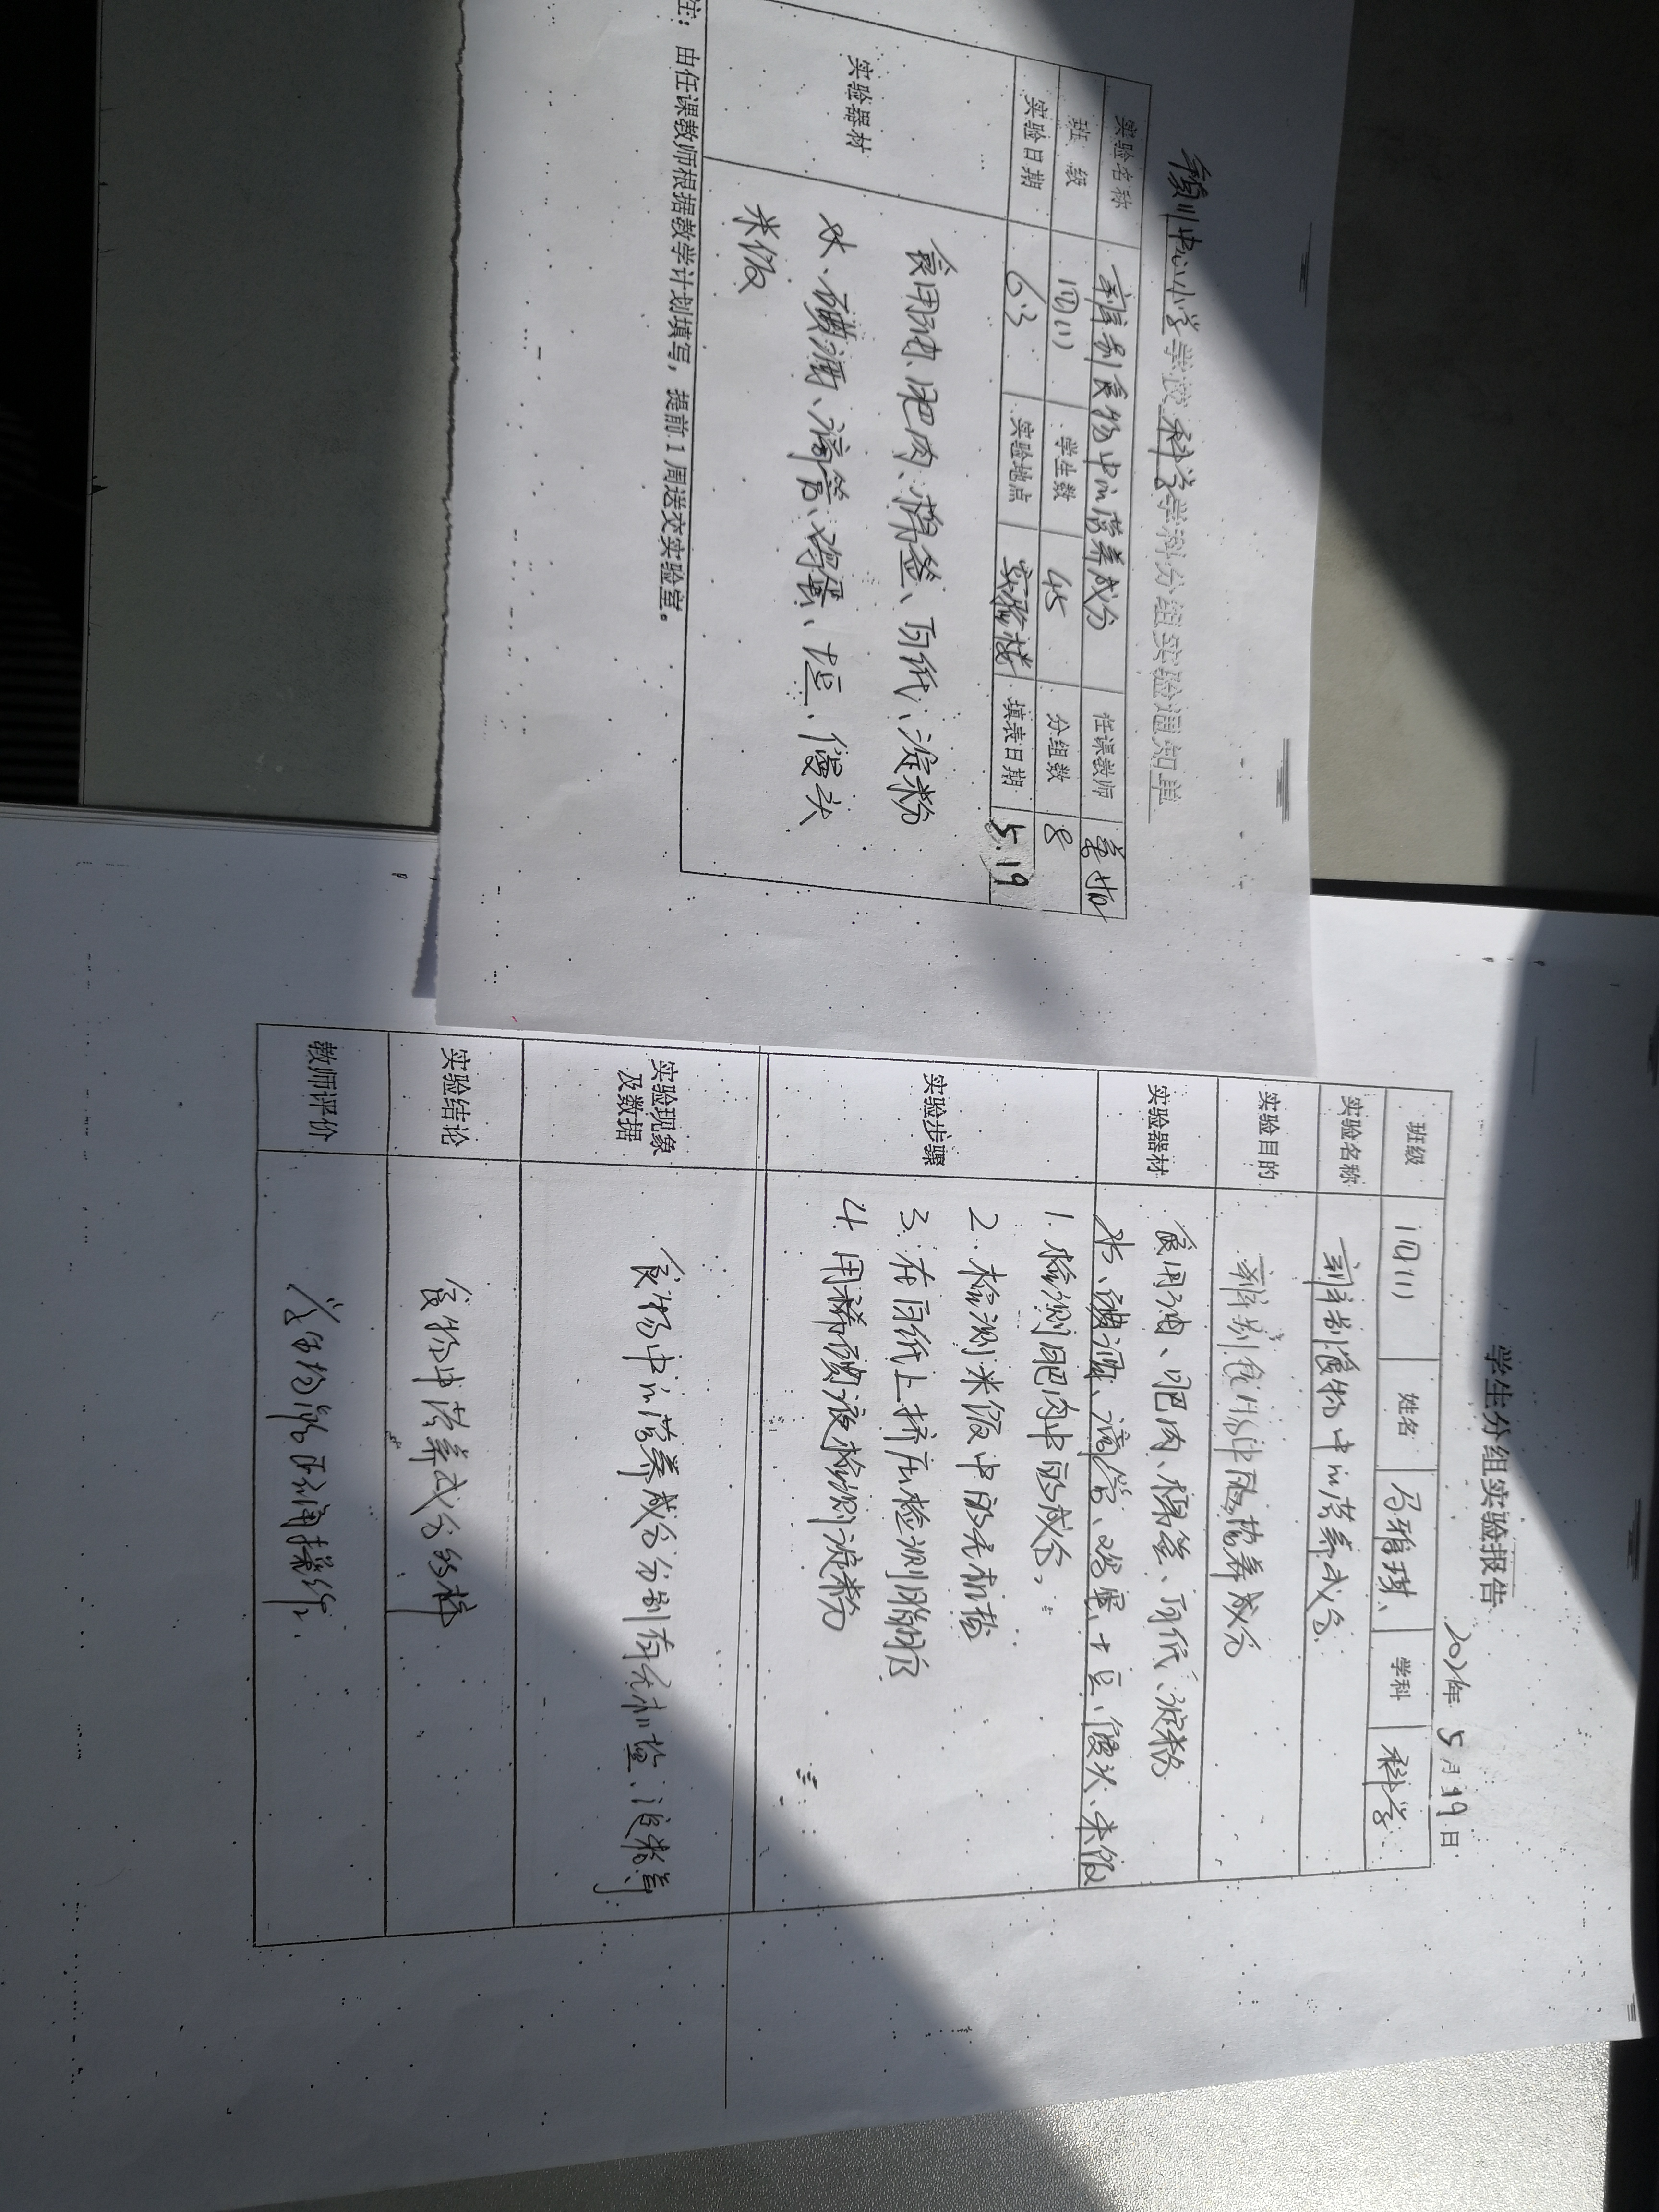 颍川中心小学学校科学学科分组实验通知单
实验名称 辨别食物中的营养成分 任课教师
班 级 四(1) 学生数 45 分组数 8
实验日期 6.3 实验地点 实验楼 填表日期 5.19
实验器材
食用油、肥肉、棉签、白纸、淀粉
水、碘酒、滴管、鸡蛋、土豆、馒头
米饭
注：由任课教师根据教学计划填写，提前1周送交实验室。
学生分组实验报告
2021年 5月19日
班级 四(1) 姓名 马雅琪 学科 科学
实验名称 辨别食物中的营养成分
实验目的 辨别食物中的营养成分
实验器材
食用油、肥肉、棉签、白纸、淀粉
水、碘酒、滴管、鸡蛋、土豆、馒头、米饭
实验步骤
1.检测肥肉中的成分。
2.检测米饭中的无机盐
3.在白纸上挤压检测脂肪
4.用稀碘液检测淀粉
实验现象
及数据
食物中的营养成分分别有无机盐、淀粉等
实验结论
食物中营养成分多样
教师评价
学生均能正确操作.